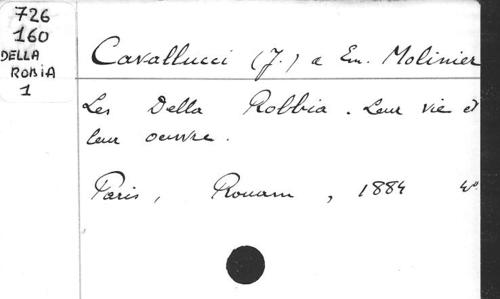 726
160
DELLA
ROBIA
1
Cavallucci (J.) a Em. Molinier
Les Della Robbia. Leur vie et
leur oeuvre.
Paris, Rouam, 1884